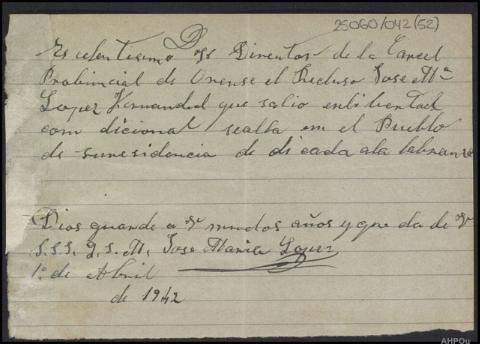 25060/042(52)
Escelentisimo Dor Dirertor de la Carcel
Probimcial de Orense el Recluso Jose Mª
Lopez Hernanded que salio enlibertad
com dicional sealla em el Pueblo
de suresidencia de di cada ala labranza
Dios guarde a V muchos años y que da de V
S.S.S. q. S. M. Jose Maria Lopez
1º de Abril
de 1942
AHPOu